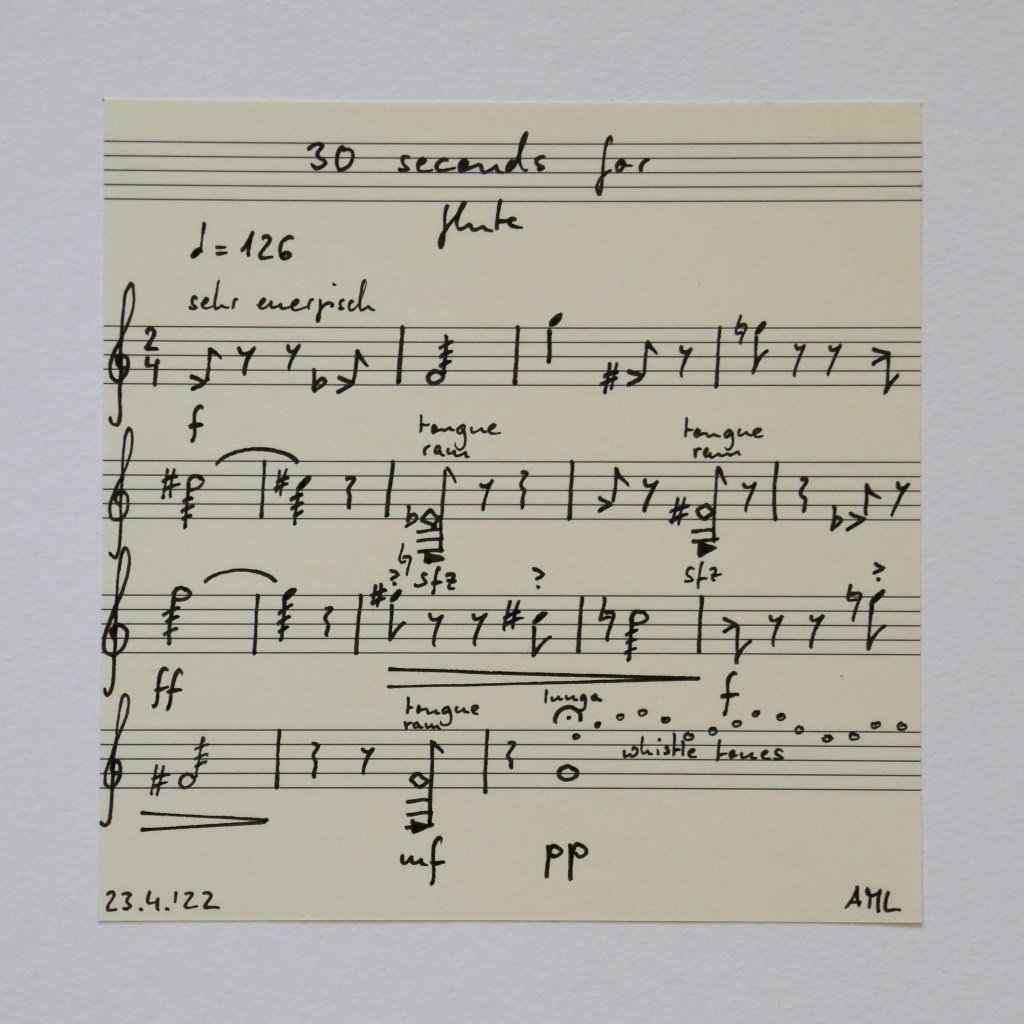 30 seconds for
flute
♩ = 126
sehr energisch
2
4
f
tongue
ram
tongue
ram
sfz
sfz
ff
f
tongue
ram
lunga
whistle tones
mf
pp
23.4.'22
AML